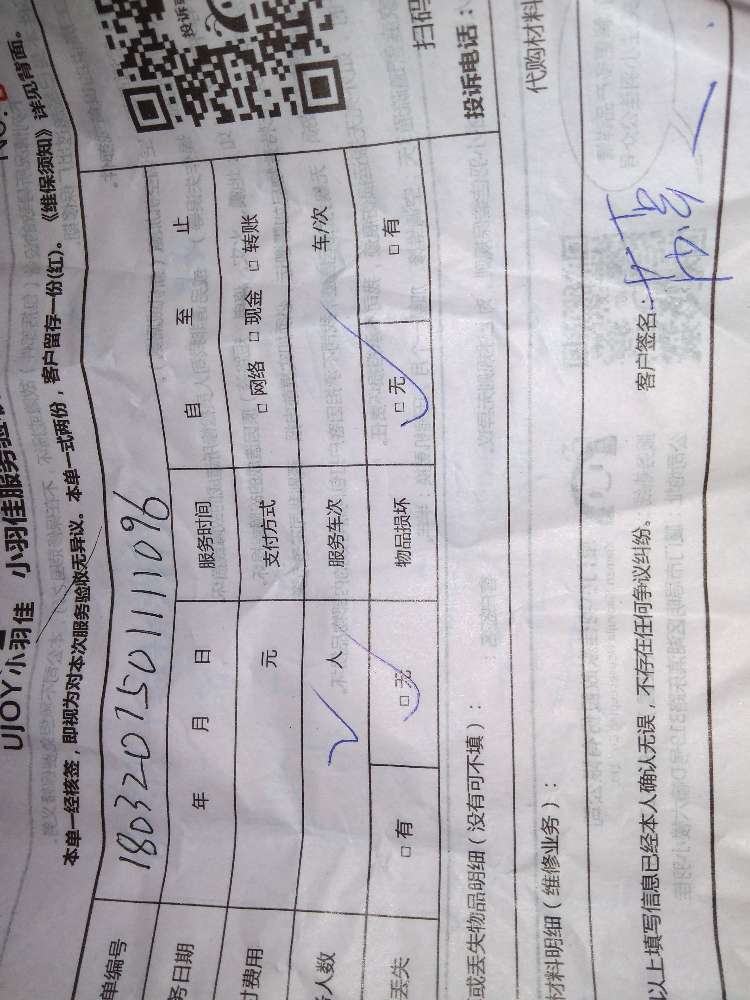 UJOY小羽佳 小羽佳服务验收
本单一经核签，即视为对本次服务验收无异议。本单一式两份，客户留存一份(红)。《维保须知》详见背面。
单编号 180320750111096
务日期 年 月 日 服务时间 自 至 止
费用 元 支付方式 □ 网络 □ 现金 □ 转账
人数 人 服务车次 车/次
丢失 □ 有 □ 无 物品损坏 □ 无 □ 有
或丢失物品明细（没有可不填）： 投诉电话：
材料明细（维修业务）： 代购材料
以上填写信息已经本人确认无误，不存在任何争议纠纷。 客户签名：
投诉
扫码